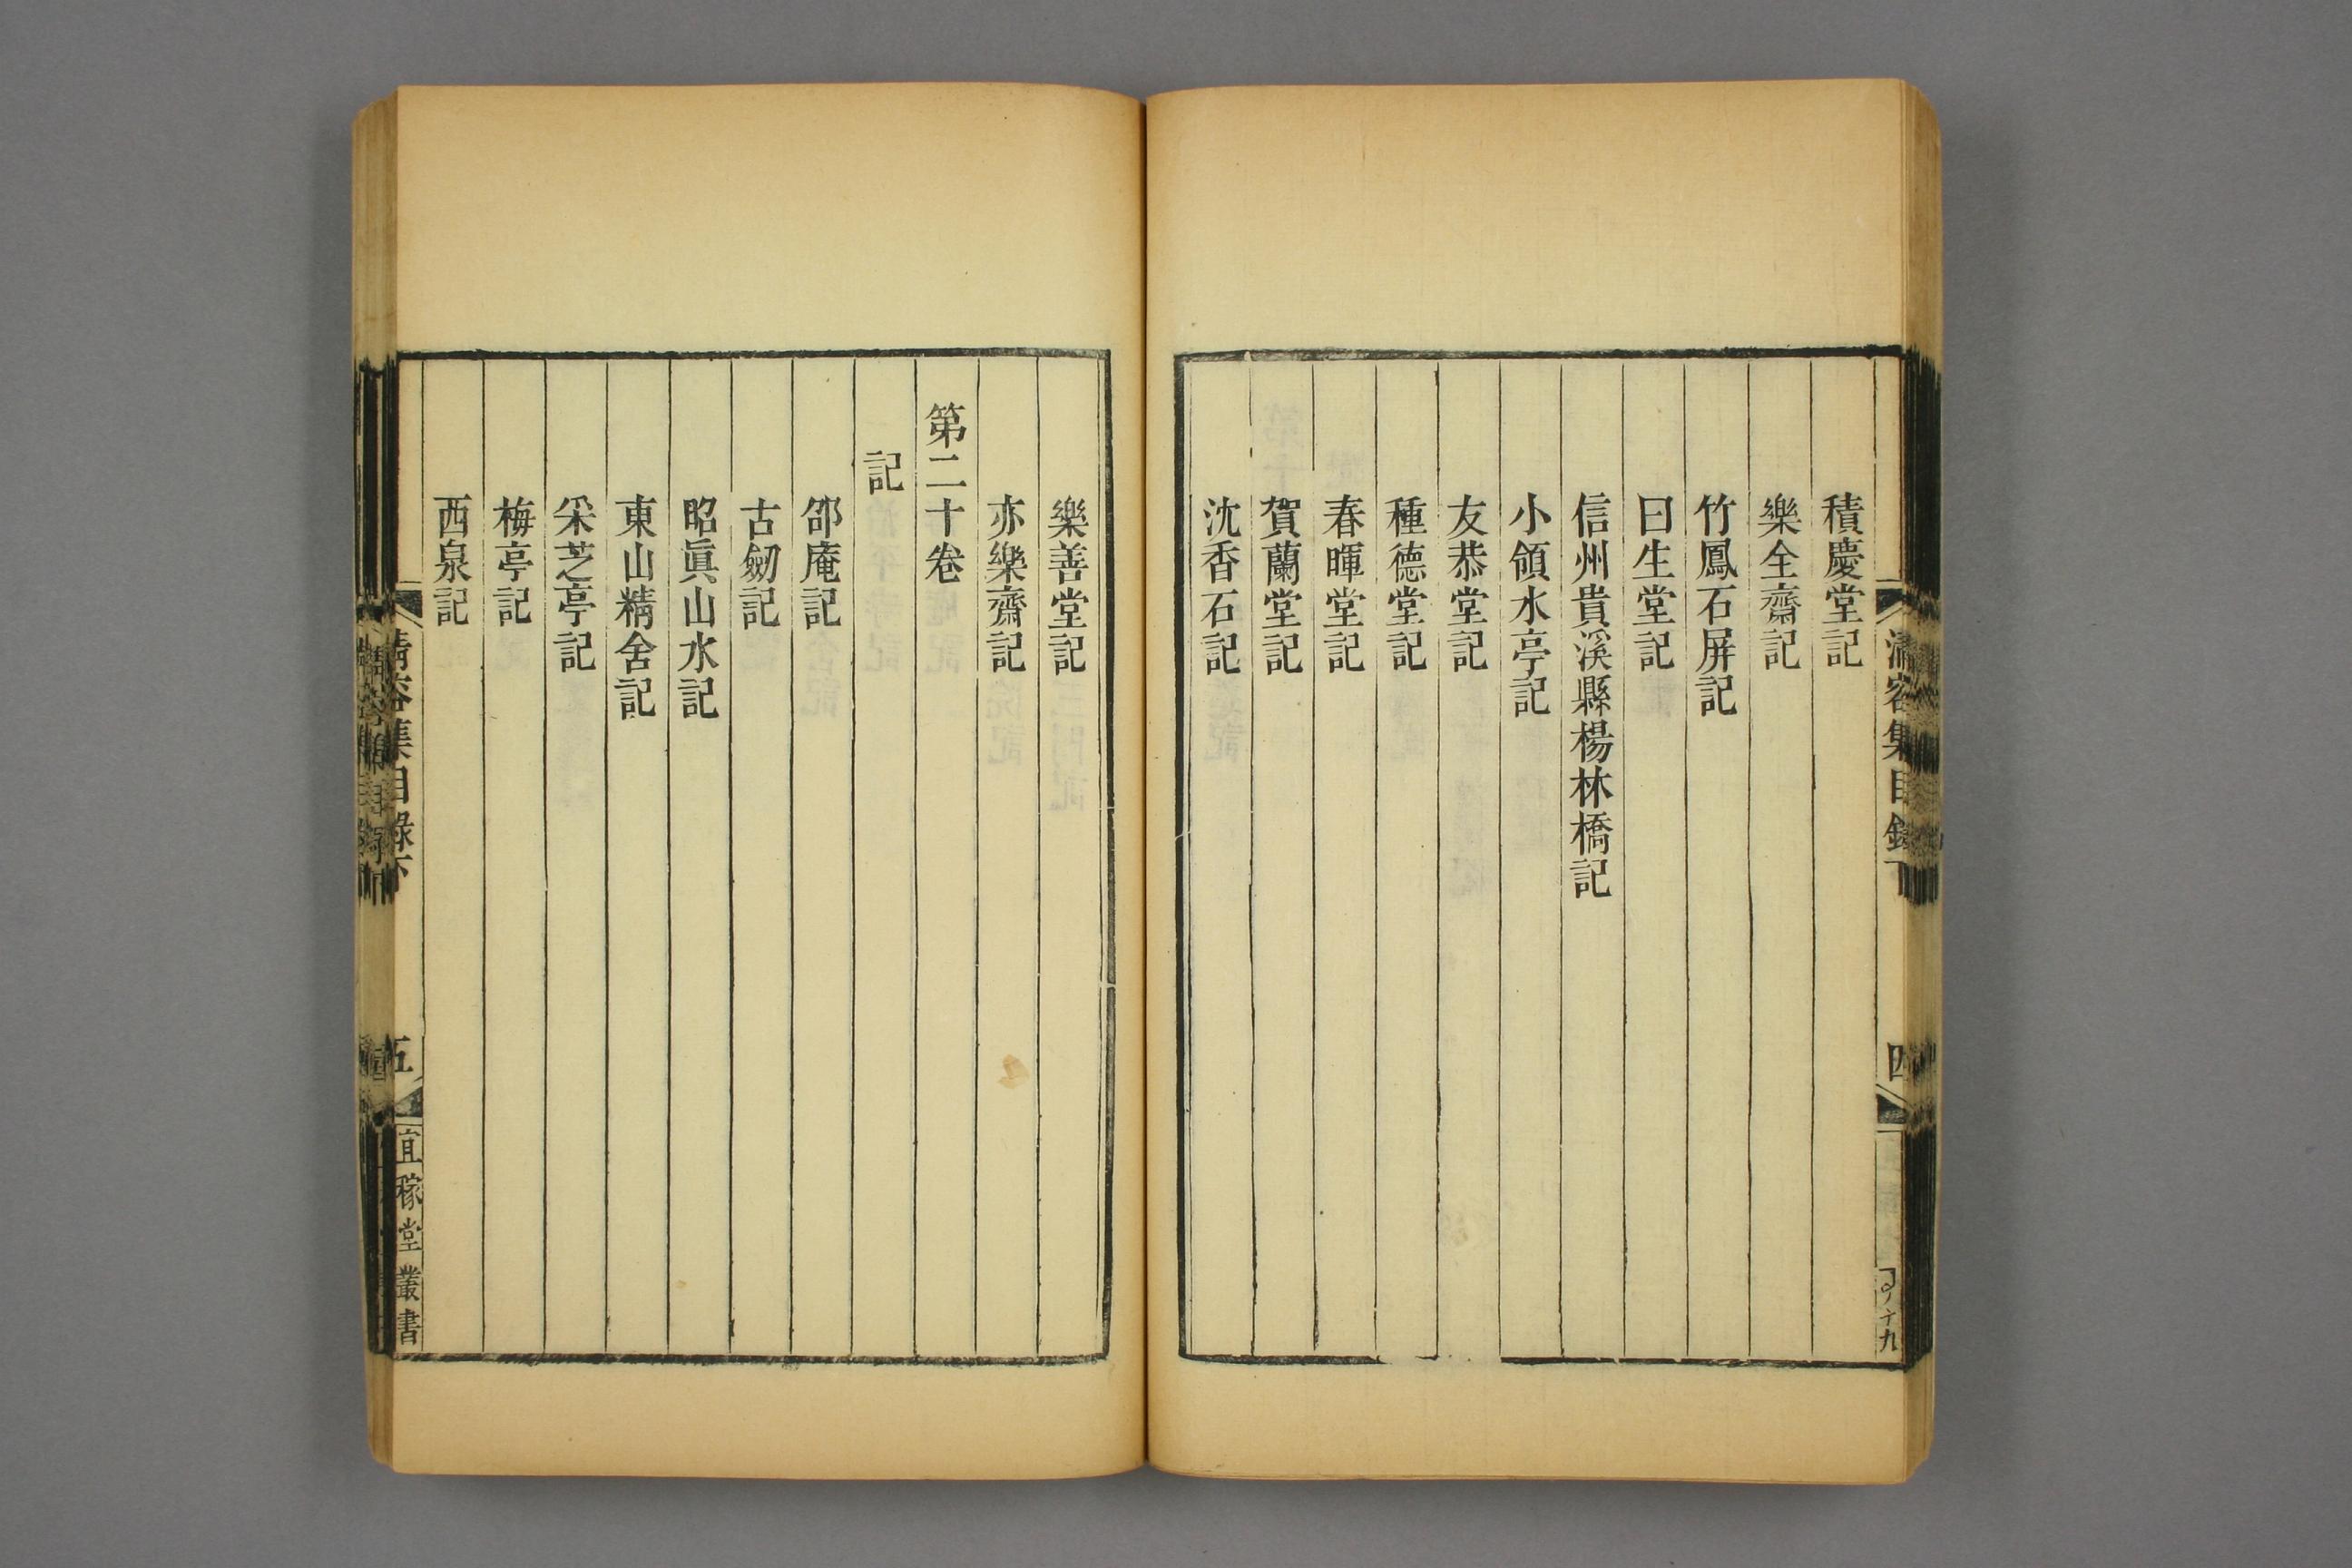 積慶堂記
樂全齋記
竹鳳石屏記
曰生堂記
信州貴溪縣楊林橋記
小領水亭記
友恭堂記
種德堂記
春暉堂記
賀蘭堂記
沈香石記
清容集目錄下
四
樂善堂記
亦樂齋記
第二十卷
記
邵庵記
古劒記
昭眞山水記
東山精舍記
采芝亭記
梅亭記
西泉記
清容集目錄下
五
宜稼堂叢書